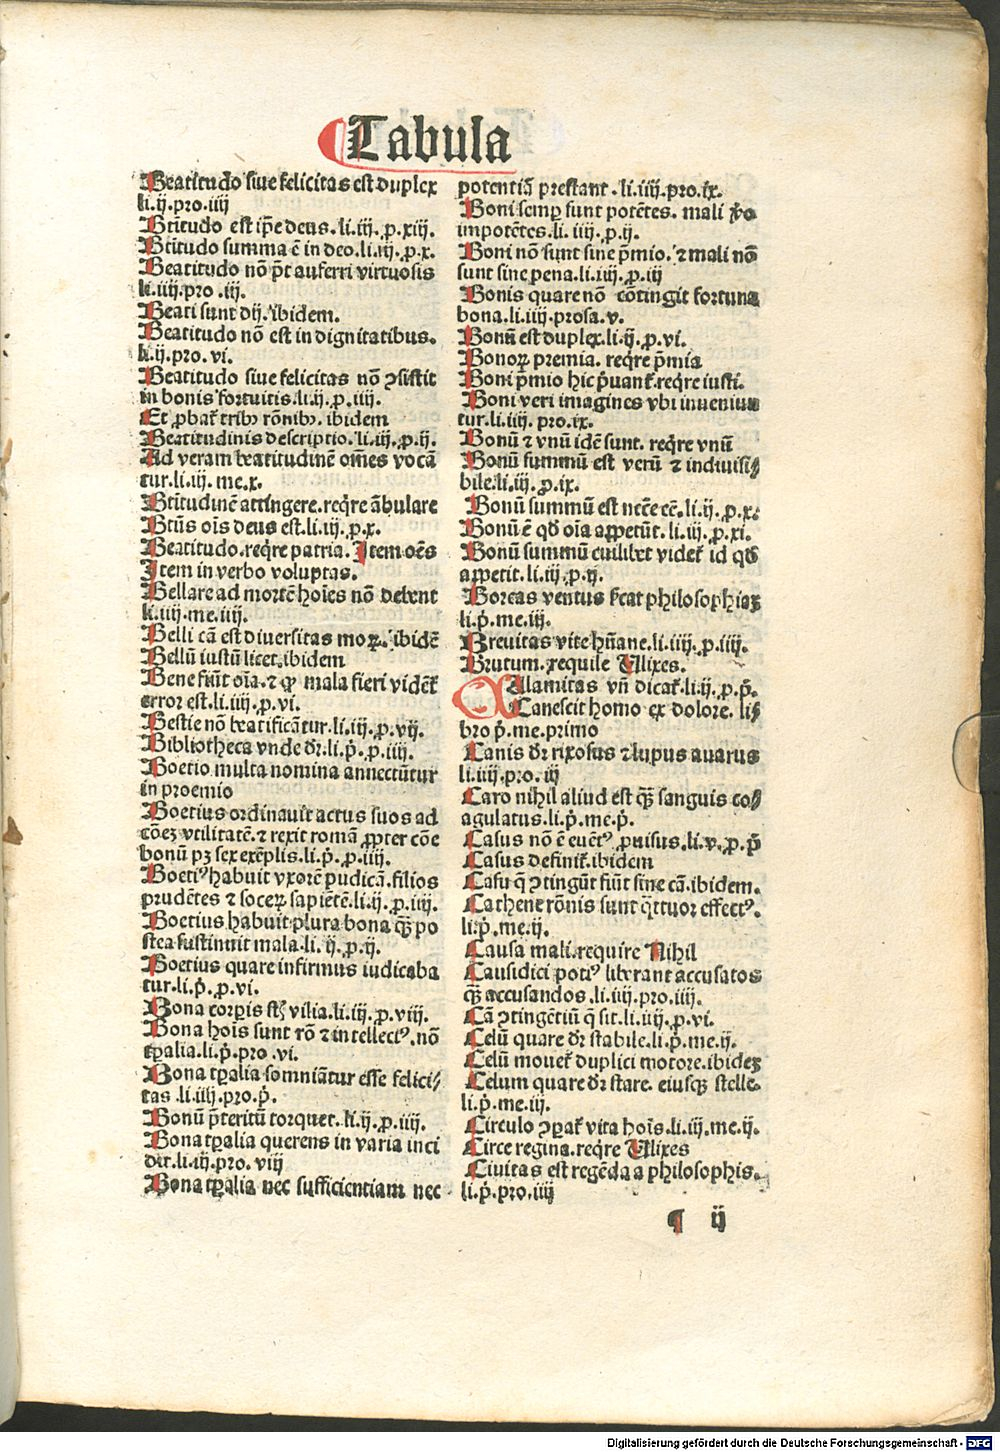 Tabula
Beatitudo siue felicitas est duplex
li.ij.pro.iiij
Btitudo est ip̄e deus.li.iij.ꝓ.xiij.
Btitudo summa ē in deo.li.iij.ꝓ.x.
Beatitudo nō pōt auferri virtuosis
li.iiij.pro.iij.
Beati sunt dij.ibidem.
Beatitudo nō est in dignitatibus.
li.ij.pro.vi.
Beatitudo siue felicitas nō ꝯsistit
in bonis fortuitis.li.ij.ꝓ.iiij.
Et ꝓbat᷑ tribꝰ rōnibꝰ.ibidem
Beatitudinis descriptio.li.iij.ꝓ.ij.
Ad veram beatitudinē om̄es vocā
tur.li.iij.me.x.
Btitudinē attingere.reqr̄e ābulare
Btūs oīs deus est.li.iij.ꝓ.x.
Beatitudo.reqr̄e patria.Item oēs
Item in verbo voluptas.
Bellare ad mortē hoīes nō debent
li.iiij.me.iiij.
Belli cā est diuersitas moꝝ.ibidē
Bellū iustū licet.ibidem
Bene fiūt oīa.⁊ ꝙ mala fieri vidēt᷑
error est.li.iiij.ꝓ.vi.
Bestie nō beatificātur.li.iij.ꝓ.vij.
Bibliotheca vnde dr̄.li.p̄.ꝓ.iiij.
Boetio multa nomina annectūtur
in proemio
Boetius ordinauit actus suos ad
cōeꝫ vtilitatē.⁊ rexit romā ꝓpter cōe
bonū pꝫ sex exēplis.li.p̄.ꝓ.iiij.
Boetiꝰ habuit vxorē pudicā.filios
prudētes ⁊ soceꝝ sapiētē.li.ij.ꝓ.iiij.
Boetius habuit plura bona qꝫ̄ po
stea sustinuit mala.li.ij.ꝓ.ij.
Boetius quare infirmus iudicaba
tur.li.p̄.ꝓ.vi.
Bona corꝑis st̄ vilia.li.iij.ꝓ.viij.
Bona hoīs sunt rō ⁊ intellectꝰ.nō
tꝑalia.li.p̄.pro.vi.
Bona tꝑalia somniātur esse felici⸗
tas.li.iij.pro.p̄.
Bonū p̄teritū torquet.li.ij.ꝓ.iiij.
Bona tꝑalia querens in varia inci
dit.li.iij.pro.viij
Bona tꝑalia nec sufficientiam nec
potentiā prestant.li.iiij.pro.ix.
Boni semꝑ sunt potētes.mali v̄o
impotētes.li.iiij.ꝓ.ij.
Boni nō sunt sine p̄mio.⁊ mali nō
sunt sine pena.li.iiij.ꝓ.iij
Bonis quare nō cōtingit fortuna
bona.li.iiij.prosa.v.
Bonū est duplex.li.ij.ꝓ.vi.
Bonoꝝ premia.reqr̄e p̄mia
Boni p̄mio hic p̄uant᷑.reqr̄e iusti.
Boni veri imagines vbi inueniun
tur.li.iiij.pro.ix.
Bonū ⁊ vnū idē sunt.reqr̄e vnū
Bonū summū est verū ⁊ indiuisi⸗
bile.li.iij.ꝓ.ix.
Bonū summū est necc̄e eē.li.ij.ꝓ.x.
Bonū ē qd̄ oīa appetūt.li.iij.ꝓ.xi.
Bonū summū cuilibet videt᷑ id qd̄
appetit.li.iij.ꝓ.ij.
Boreas ventus s̄cat philosophiaꝫ
li.p̄.me.iij.
Breuitas vite hūane.li.iiij.ꝓ.iiij.
Brutum.require Vlixes.
Calamitas vn̄ dicat᷑.li.ij.ꝓ.p̄.
Canescit homo ex dolore.li⸗
bro p̄.me.primo
Canis dr̄ rixosus ⁊ lupus auarus
li.iiij.pro.iij
Caro nihil aliud est qꝫ̄ sanguis co⸗
agulatus.li.p̄.me.p̄.
Casus nō ē euētꝰ puisus.li.v.ꝓ.p̄
Casus definit᷑.ibidem
Casu q̄ ꝯtingūt fiūt sine cā.ibidem.
Cathene rōnis sunt q̄ttuor effectꝰ.
li.p̄.me.ij.
Causa mali.require Nihil
Causidici potiꝰ liberant accusatos
qꝫ̄ accusandos.li.iiij.pro.iiij.
Cā ꝯtingētiū q̄ sit.li.iiij.ꝓ.vi.
Celū quare dr̄ stabile.li.p̄.me.ij.
Celū mouet᷑ duplici motore.ibideꝫ
Celum quare dr̄ stare.eiusqꝫ stelle.
li.p̄.me.iij.
Circulo ꝯparat᷑ vita hoīs.li.iij.me.ij.
Circe regina.reqr̄e Vlixes
Ciuitas est regēda a philosophis.
li.p̄.pro.iiij
¶ ij
Digitalisierung gefördert durch die Deutsche Forschungsgemeinschaft - DFG